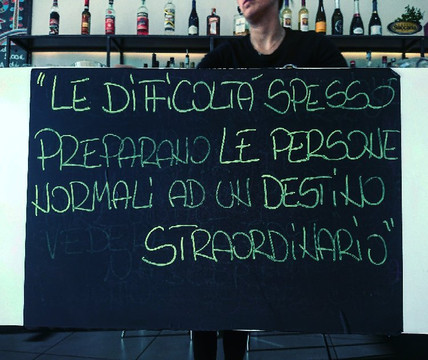 "LE DIFFICOLTÀ SPESSO
PREPARANO LE PERSONE
NORMALI AD UN DESTINO
STRAORDINARIO"